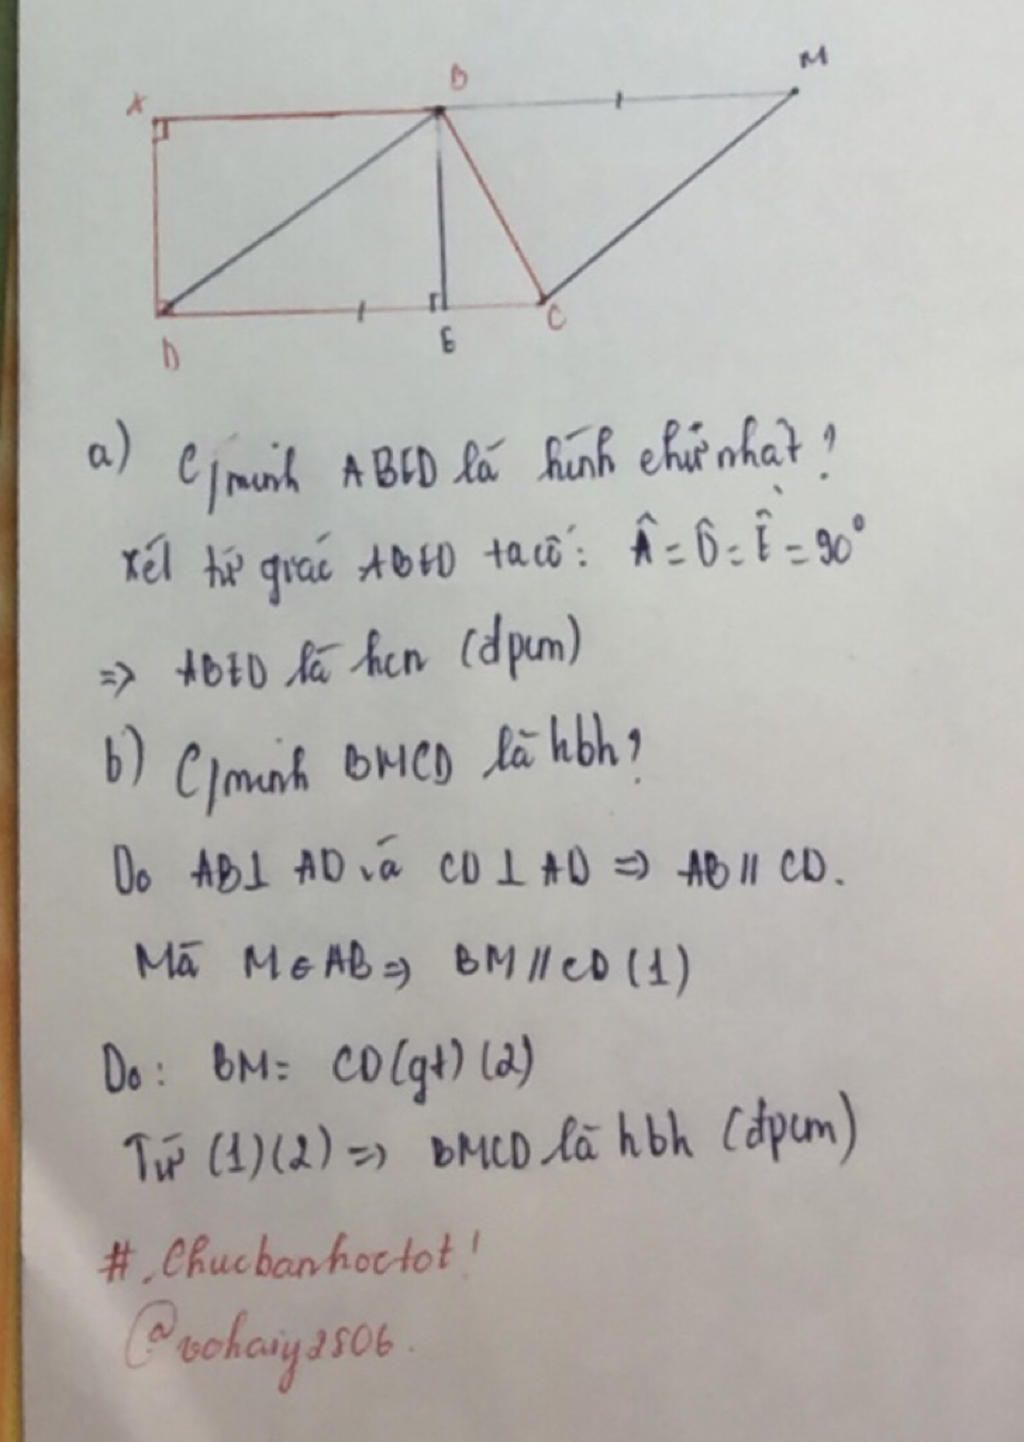 A B M
D E C
a) C/minh ABED là hình chữ nhật?
Xét tứ giác ABED ta có: Â = D̂ = Ê = 90°
=> ABED là hcn (đpcm)
b) C/minh BMCD là hbh?
Do AB ⊥ AD và CD ⊥ AD => AB // CD.
Mà M ∈ AB => BM // CD (1)
Do: BM = CD (gt) (2)
Từ (1)(2) => BMCD là hbh (đpcm)
#.Chucbanhoctot!
@vohaiy2806.